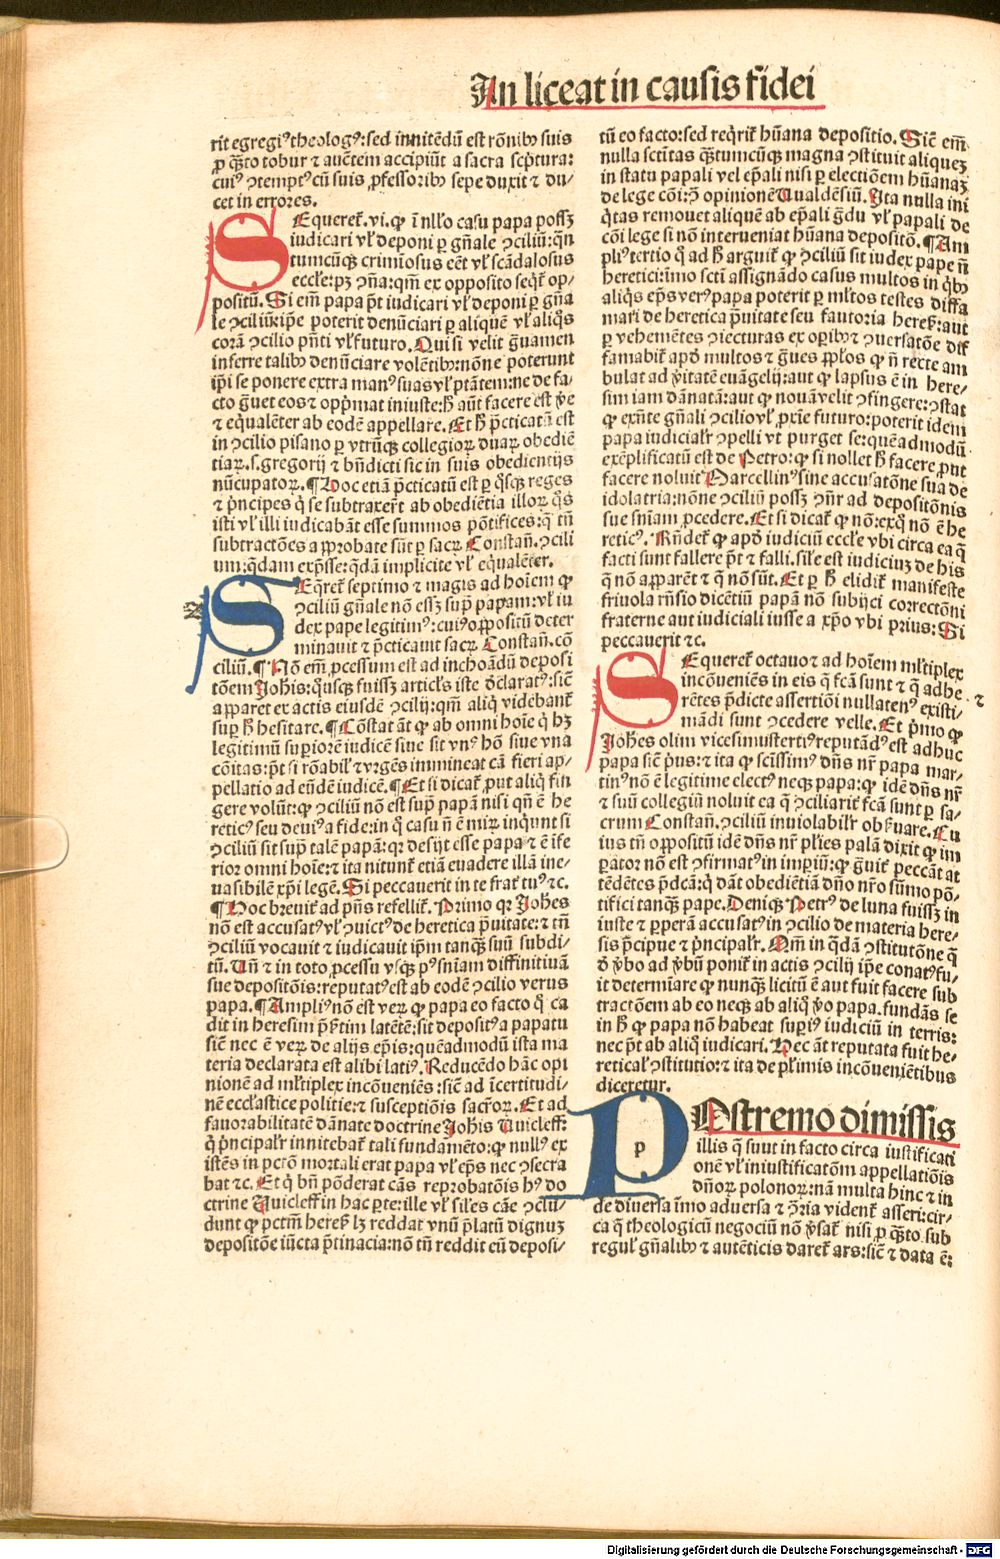 An liceat in causis fidei
rit egregiꝰ theologꝰ: sed innitēdū est rōnibꝫ suis
ꝓ qͣ̄to robur ⁊ auc̄tem accipiūt a sacra sc̄ptura:
cuiꝰ ꝯtemptꝰ cū suis ꝓfessoribꝫ sepe duxit ⁊ du/
cet in errores.
SEqueret̃. vi. ꝙ ī nll̓o casu papa possꝫ
iudicari vl̓ deponi ꝑ gn̄ale ꝯciliū: qn̄
tumcūqꝫ crimīosus eēt vl̓ scādalosus
eccl̓e: pꝫ ꝯn̄a: qm̄ ex opposito seqͥt̃ op/
positū. Si em̄ papa pōt iudicari vl̓ deponi ꝑ gn̄a
le ꝯciliū: ip̄e poterit denūciari ꝑ aliquē vl̓ aliqͦs
corā ꝯcilio pn̄ti vl̓ futuro. Qui si velit gͣuamen
inferre talibꝫ denūciare volētibꝫ: nōne poterunt
ip̄i se ponere extra manꝰ suas vl̓ ptātem: ne de fa/
cto gͣuet eos ⁊ opp̄mat iniuste: h̄ aūt facere est ꝟe
⁊ equalēter ab eodē appellare. Et h̄ pͣcticatū est
in ꝯcilio pisano ꝑ vtrūqꝫ collegioꝝ duaꝝ obediē
tiaꝝ. s. gregorij ⁊ bn̄dicti sic in suis obedientijs
nūcupatoꝝ. ¶ Hoc etiā pͣcticatū est ꝑ qͦsqꝫ reges
⁊ pͥncipes qͥ se subtraxer̄t ab obediētia illoꝝ qͦs
isti vl̓ illi iudicabāt esse summos pōtifices: qͣ tn̄
subtractōes approbate sūt ꝑ sacꝝ Constan̄. ꝯcili
um: qͣdam exp̄sse: qͣdā implicite vl̓ equalēter.
SEqͥret̃ septimo ⁊ magis ad hoīem ꝙ
ꝯciliū gn̄ale nō essꝫ supͣ papam: vl̓ iu
dex pape legitimꝰ: cuiꝰ oppositū deter
minauit ⁊ pͣcticauit sacꝝ Constan̄. cō
ciliū. ¶ Nō em̄ ꝓcessum est ad inchoādū deposi
tōem Joh̄is: qͦusqꝫ fuissꝫ articl̓s iste dclaratꝰ: sic̄
apparet ex actis eiusdē ꝯcilij: qm̄ aliqͥ videbant̃
suꝑ h̄ hesitare. ¶ Cōstat āt ꝙ ab omni hoīe qͥ hꝫ
legitimū supiorē iudicē siue sit vnꝰ hō siue vna
cōitas: pōt si rōabil̓ ⁊ vrgēs immineat cā fieri ap/
pellatio ad eūdē iudicē. ¶ Et si dicat̃ ꝓut aliqͥ fin
gere volūt: ꝙ ꝯciliū nō est supͣ papā nisi qn̄ ē he
reticꝰ seu deuiꝰ a fide: in qͦ casu n̄ ē miꝝ inqͥunt si
ꝯciliū sit supͣ talē papā: qꝛ desijt esse papa ⁊ ē īfe
rior omni hoīe: ⁊ ita nitunt̃ etiā euadere illā ine/
uasibilē xp̄i legē. Si peccauerit in te frat̃ tuꝰ ⁊c.
¶ Hoc breuit̃ ad pn̄s refellit̃. Primo qꝛ Joh̄es
nō est accusatꝰ vl̓ ꝯuictꝰ de heretica pͣuitate: ⁊ tn̄
ꝯciliū vocauit ⁊ iudicauit ip̄m tanqꝫ suū subdi/
tū. Un̄ ⁊ in toto ꝓcessu vsqꝫ pꝰ sn̄iam diffinitiuā
sue depositōis: reputatꝰ est ab eodē ꝯcilio verus
papa. ¶ Ampliꝰ nō est veꝝ ꝙ papa eo facto qͦ ca
dit in heresim pͣs̄tim latētē: sit depositꝰ a papatu
sic̄ nec ē veꝝ de alijs ep̄is: quēadmodū ista ma
teria declarata est alibi latiꝰ. Reducēdo hāc opi
nionē ad ml̓tiplex incōueniēs: sic̄ ad īcertitudi/
nē eccl̓astice politie: ⁊ susceptiōis sacr̄oꝝ. Et ad
fauorabilitatē dānate doctrine Joh̄is Uuicleff:
qͥ pͥncipalr̄ innitebat̃ tali fundamēto: ꝙ nullꝰ ex
istēs in pctō mortali erat papa vl̓ ep̄s nec ꝯsecra
bat ⁊c. Et qͥ bn̄ pōderat cās reprobatōis hꝰ do
ctrine Uuicleff in hac ꝑte: ille vl̓ siles cāe ꝯclu/
dunt ꝙ pctm̄ heres̄ lꝫ reddat vnū pl̄atū dignuꝫ
depositōe iūcta ptinacia: nō tn̄ reddit eū deposi/
tū eo facto: sed reqͥrit̃ hūana depositio. Sic̄ em̄
nulla sctītas qͣ̄tumcūqꝫ magna ꝯstituit aliqueꝫ
in statu papali vel ep̄ali nisi ꝑ electiōem hūanaꝫ
de lege cōi: ꝯ̄ opinionē Ualdēsiū. Ita nulla ini
qͥtas remouet aliquē ab ep̄ali gͣdu vl̓ papali de
cōi lege si nō interueniat hūana depositō. ¶ Am
plꝰ tertio qͥ ad h̄ arguit̃ ꝙ ꝯciliū sit iudex pape n̄
heretici: imo sctī assignādo casus multos in qͥbꝫ
aliqͥs ep̄s verꝰ papa poterit ꝑ ml̓tos testes diffa
mari de heretica pͣuitate seu fautoria heres̄: aut
ꝑ vehemētes ꝯiecturas ex oꝑibꝫ ⁊ ꝯuersatōe dif
famabit̃ apd̓ multos ⁊ gͣues ppl̓os ꝙ n̄ recte am
bulat ad ꝟitatē euāgelij: aut ꝙ lapsus ē in here/
sim iam dānatā: aut ꝙ nouā velit ꝯfingere: ꝯstat
ꝙ exn̄te gn̄ali ꝯcilio vl̓ ꝓxīe futuro: poterit idem
papa iudicialr̄ ꝯpelli vt purget se: quēadmodū
exēplificatū est de Petro: ꝙ si nollet h̄ facere ꝓut
facere noluit Marcellinꝰ sine accusatōne sua de
idolatria: nōne ꝯciliū possꝫ ꝯn̄r ad depositōnis
sue sn̄iam ꝓcedere. Et si dicat̃ ꝙ nō: exqͦ nō ē he
reticꝰ. Rn̄det̃ ꝙ apd̓ iudiciū eccl̓e vbi circa ea qͣ
facti sunt fallere pōt ⁊ falli. sil̓e est iudiciuꝫ de his
qͣ nō apparēt ⁊ qͣ nō sūt. Et ꝑ h̄ elidit̃ manifeste
friuola rn̄sio dicētiū papā nō subijci correctōni
fraterne aut iudiciali iusse a xp̄o vbi prius: Si
peccauerit ⁊c.
SEqueret̃ octauo ⁊ ad hoīem ml̓tiplex
incōueniēs in eis qͣ fcā sunt ⁊ qͣ adhe/
rētes pͣdicte assertiōi nullatenꝰ existi/
mādi sunt ꝯcedere velle. Et pͥmo ꝙ
Joh̄es olim vicesimustertiꝰ reputādꝰ est adhuc
papa sic̄ pͥus: ⁊ ita ꝙ sc̄issimꝰ dn̄s nr̄ papa mar/
tinꝰ nō ē legitime electꝰ neqꝫ papa: ꝙ idē dn̄s nr̄
⁊ suū collegiū noluit ea qͣ ꝯciliarit̃ fcā sunt ꝑ sa/
crum Constan̄. ꝯciliū inuiolabilr̄ obs̄uare. Cu
ius tn̄ oppositū idē dn̄s nr̄ pl̓ies palā dixit ꝙ im
ꝑator nō est ꝯfirmatꝰ in imꝑiū: ꝙ gͣuit̃ peccāt at
tēdētes pͣdcā: qͥ dāt obediētiā dn̄o nr̄o sūmo pō/
tifici tanqꝫ pape. Deniqꝫ Petrꝰ de luna fuissꝫ in
iuste ⁊ ꝑperā accusatꝰ in ꝯcilio de materia here/
sis pͣcipue ⁊ pͥncipalr̄. Qm̄ in qͣdā ꝯstitutōne qͣ
d̓ ꝟbo ad ꝟbū ponit̃ in actis ꝯcilij ip̄e conatꝰ fu/
it determīare ꝙ nunqꝫ licitū ē aut fuit facere sub
tractōem ab eo neqꝫ ab aliqͦ ꝟo papa. fundās se
in h̄ ꝙ papa nō habeat supiꝰ iudiciū in terris:
nec pōt ab aliqͦ iudicari. Hec āt reputata fuit he/
retical̓ ꝯstitutio: ⁊ ita de pl̓imis incōueniētibus
diceretur.
POstremo dimissis
p
illis qͣ sunt in facto circa iustificati
onē vl̓ iniustificatōm appellatiōis
dn̄oꝝ polonoꝝ: nā multa hinc ⁊ in
de diuersa īmo aduersa ⁊ ꝯͣria vident̃ asseri: cir/
ca qͣ theologicū negociū nō ꝟsat̃ nisi ꝓ qͣ̄to sub
regul̓ gn̄alibꝫ ⁊ autēticis daret̃ ars: sic̄ ⁊ data ē:
Digitalisierung gefördert durch die Deutsche Forschungsgemeinschaft - DFG